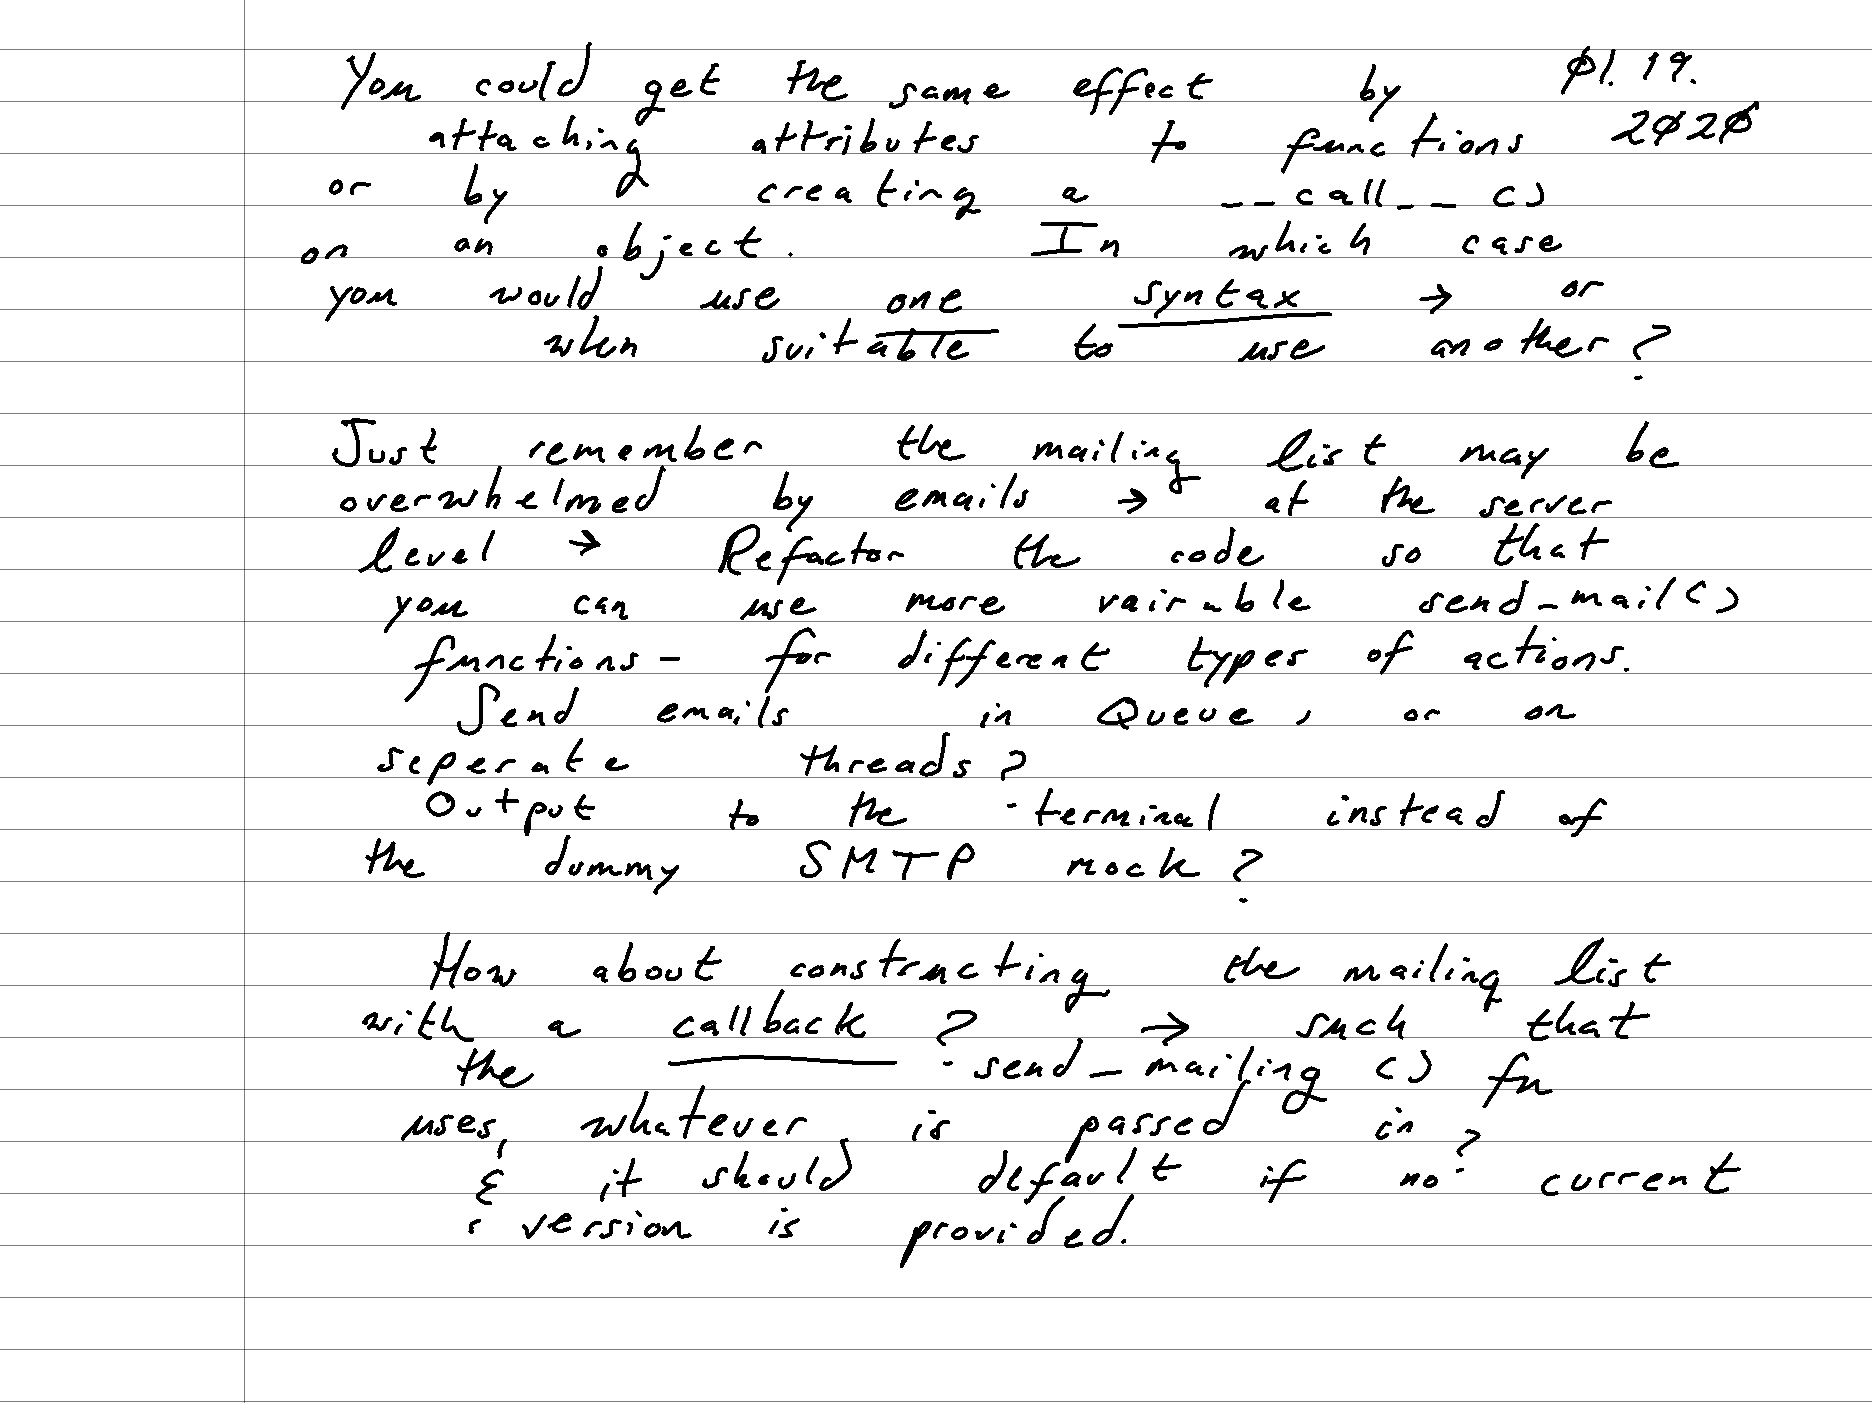 You could get the same effect by Ø1. 19.
attaching attributes to functions 2Ø2Ø
or by creating a __call__()
on an object. In which case
you would use one syntax → or
when suitable to use another?
Just remember the mailing list may be
overwhelmed by emails → at the server
level → Refactor the code so that
you can use more vairable send_mail()
functions - for different types of actions.
Send emails in Queue, or on
seperate threads?
Output to the terminal instead of
the dummy SMTP mock?
How about constructing the mailing list
with a callback? → such that
the send_mailing() fn
uses, whatever is passed in?
& it should default if no current
version is provided.